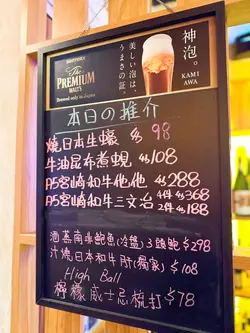 SUNTORY
The
PREMIUM
MALT'S
Brewed only in Japan
美しい泡は、
うまさの証。
神泡。
KAMI
AWA
本日の推介
燒日本生蠔 $98
牛油昆布煮蜆 $108
A5宮崎和牛他他 $288
A5宮崎和牛三文治 4件 $368
2件 $188
酒蒸南非鮑魚(冷盤) 3頭鮑 $298
汁燒日本和牛肝(獨家) $108
High Ball
檸檬威士忌梳打 $78